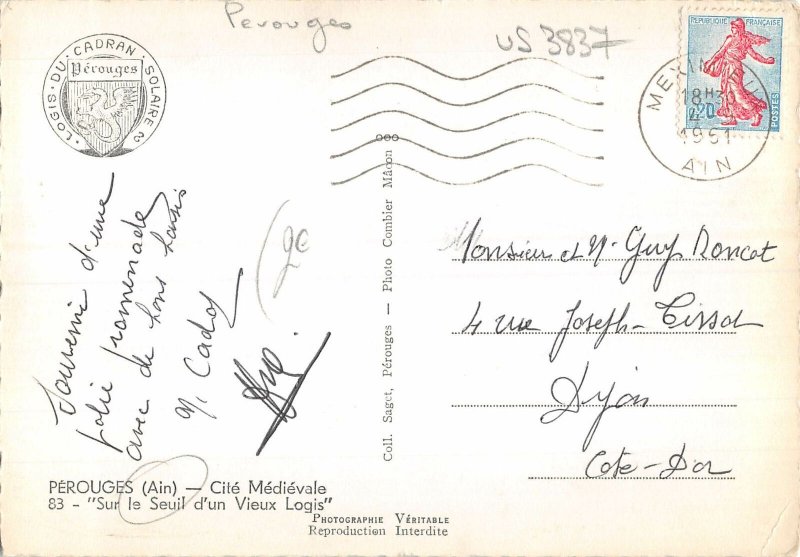 Perouges
US 3837
LOGIS · DU · CADRAN · SOLAIRE
Pérouges
REPUBLIQUE FRANÇAISE
0,20
POSTES
MEXIMIEUX
18H30
1961
AIN
Souvenir d'une
jolie promenade
avec de bons baisers
20
Monsieur et M. Guy Roncot
4 rue Joseph-Tissot
Dijon
Cote-D'or
Coll. Saget, Pérouges — Photo Combier Mâcon
PÉROUGES (Ain) — Cité Médiévale
83 - "Sur le Seuil d'un Vieux Logis"
PHOTOGRAPHIE VÉRITABLE
Reproduction Interdite